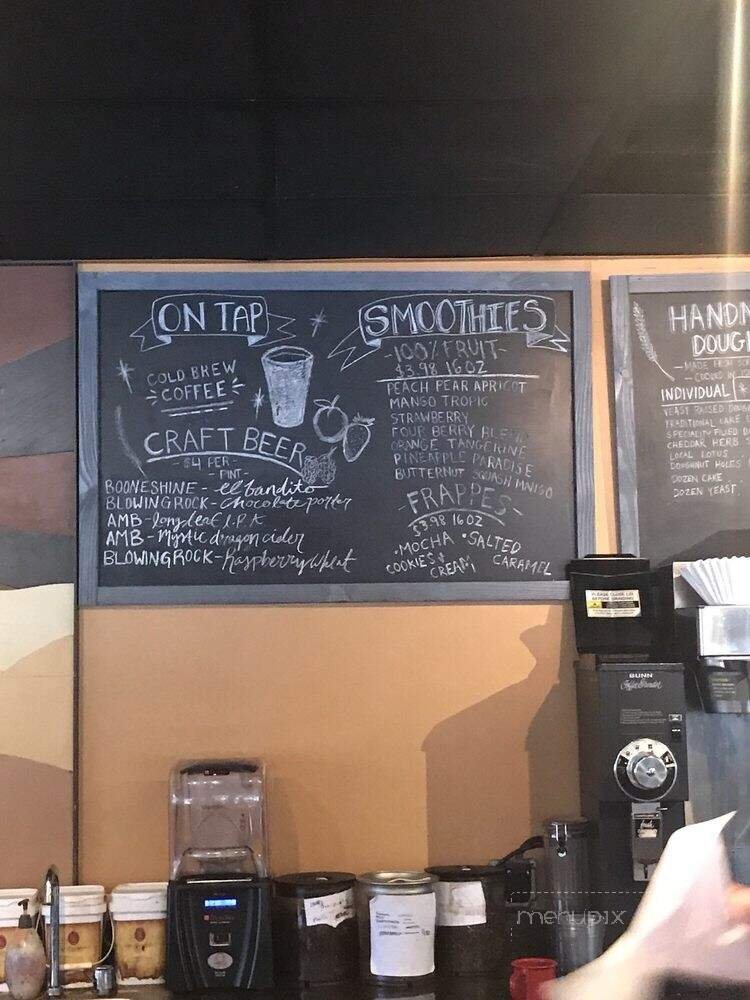 ON TAP
COLD BREW
COFFEE
CRAFT BEER
- $4 PER -
- PINT -
BOONESHINE - el bandito
BLOWING ROCK - chocolate porter
AMB - long leaf I.P.A
AMB - Mystic dragon cider
BLOWING ROCK - Raspberry Wheat
SMOOTHIES
- 100% FRUIT -
$3.98 16 OZ
PEACH PEAR APRICOT
MANGO TROPIC
STRAWBERRY
FOUR BERRY BLEND
ORANGE TANGERINE
PINEAPPLE PARADISE
BUTTERNUT SQUASH MANGO
- FRAPPES -
$3.98 16 OZ
• MOCHA • SALTED
CARAMEL
COOKIES &
CREAM
HANDM
DOUG
MADE FROM
INDIVIDUAL
YEAST RAISED
TRADITIONAL CAKE
SPECIALITY FILLED
CHEDDAR HERB
LOCAL LOTUS
DOUGHNUT HOLES
DOZEN CAKE
DOZEN YEAST
PLEASE CLOSE LID
BEFORE GRINDING
BUNN
menupix